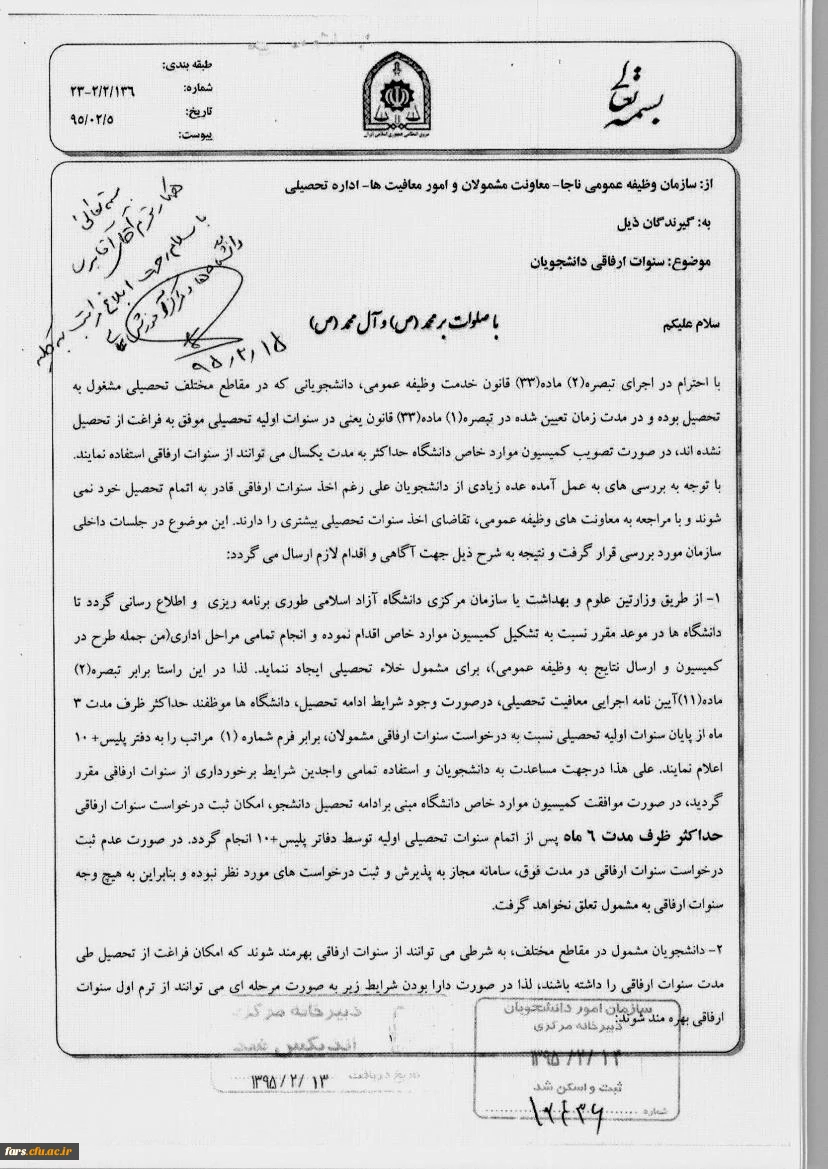 بسمه تعالی
طبقه بندی:
شماره: ۲۳-۲/۲/۱۳۶
تاریخ: ۹۵/۰۲/۵
پیوست:
نیروی انتظامی جمهوری اسلامی ایران
از: سازمان وظیفه عمومی ناجا- معاونت مشمولان و امور معافیت ها- اداره تحصیلی
به: گیرندگان ذیل
موضوع: سنوات ارفاقی دانشجویان
سلام علیکم
با صلوات بر محمد (ص) و آل محمد (ص)
بسمه تعالی
همکار محترم آقای
با سلام
۹۵/۲/۱۵
با احترام در اجرای تبصره(۲) ماده(۳۳) قانون خدمت وظیفه عمومی، دانشجویانی که در مقاطع مختلف تحصیلی مشغول به
تحصیل بوده و در مدت زمان تعیین شده در تبصره(۱) ماده(۳۳) قانون یعنی در سنوات اولیه تحصیلی موفق به فراغت از تحصیل
نشده اند، در صورت تصویب کمیسیون موارد خاص دانشگاه حداکثر به مدت یکسال می توانند از سنوات ارفاقی استفاده نمایند.
با توجه به بررسی های به عمل آمده عده زیادی از دانشجویان علی رغم اخذ سنوات ارفاقی قادر به اتمام تحصیل خود نمی
شوند و با مراجعه به معاونت های وظیفه عمومی، تقاضای اخذ سنوات تحصیلی بیشتری را دارند. این موضوع در جلسات داخلی
سازمان مورد بررسی قرار گرفت و نتیجه به شرح ذیل جهت آگاهی و اقدام لازم ارسال می گردد:
۱- از طریق وزارتین علوم و بهداشت یا سازمان مرکزی دانشگاه آزاد اسلامی طوری برنامه ریزی و اطلاع رسانی گردد تا
دانشگاه ها در موعد مقرر نسبت به تشکیل کمیسیون موارد خاص اقدام نموده و انجام تمامی مراحل اداری(من جمله طرح در
کمیسیون و ارسال نتایج به وظیفه عمومی)، برای مشمول خلاء تحصیلی ایجاد ننماید. لذا در این راستا برابر تبصره(۲)
ماده(۱۱)آیین نامه اجرایی معافیت تحصیلی، درصورت وجود شرایط ادامه تحصیل، دانشگاه ها موظفند حداکثر ظرف مدت ۳
ماه از پایان سنوات اولیه تحصیلی نسبت به درخواست سنوات ارفاقی مشمولان، برابر فرم شماره (۱) مراتب را به دفتر پلیس+ ۱۰
اعلام نمایند. علی هذا درجهت مساعدت به دانشجویان و استفاده تمامی واجدین شرایط برخورداری از سنوات ارفاقی مقرر
گردید، در صورت موافقت کمیسیون موارد خاص دانشگاه مبنی برادامه تحصیل دانشجو، امکان ثبت درخواست سنوات ارفاقی
حداکثر ظرف مدت ۶ ماه پس از اتمام سنوات تحصیلی اولیه توسط دفاتر پلیس+۱۰ انجام گردد. در صورت عدم ثبت
درخواست سنوات ارفاقی در مدت فوق، سامانه مجاز به پذیرش و ثبت درخواست های مورد نظر نبوده و بنابراین به هیچ وجه
سنوات ارفاقی به مشمول تعلق نخواهد گرفت.
۲- دانشجویان مشمول در مقاطع مختلف، به شرطی می توانند از سنوات ارفاقی بهرمند شوند که امکان فراغت از تحصیل طی
مدت سنوات ارفاقی را داشته باشند، لذا در صورت دارا بودن شرایط زیر به صورت مرحله ای می توانند از ترم اول سنوات
ارفاقی بهره مند شوند:
۱
سازمان امور دانشجویان
دبیرخانه مرکزی
۱۳۹۵/۲/۱۴
ثبت و اسکن شد
شماره
دبیرخانه مرکزی
اندیکس شد
تاریخ دریافت: ۱۳۹۵/۲/۱۳
fars.cfu.ac.ir